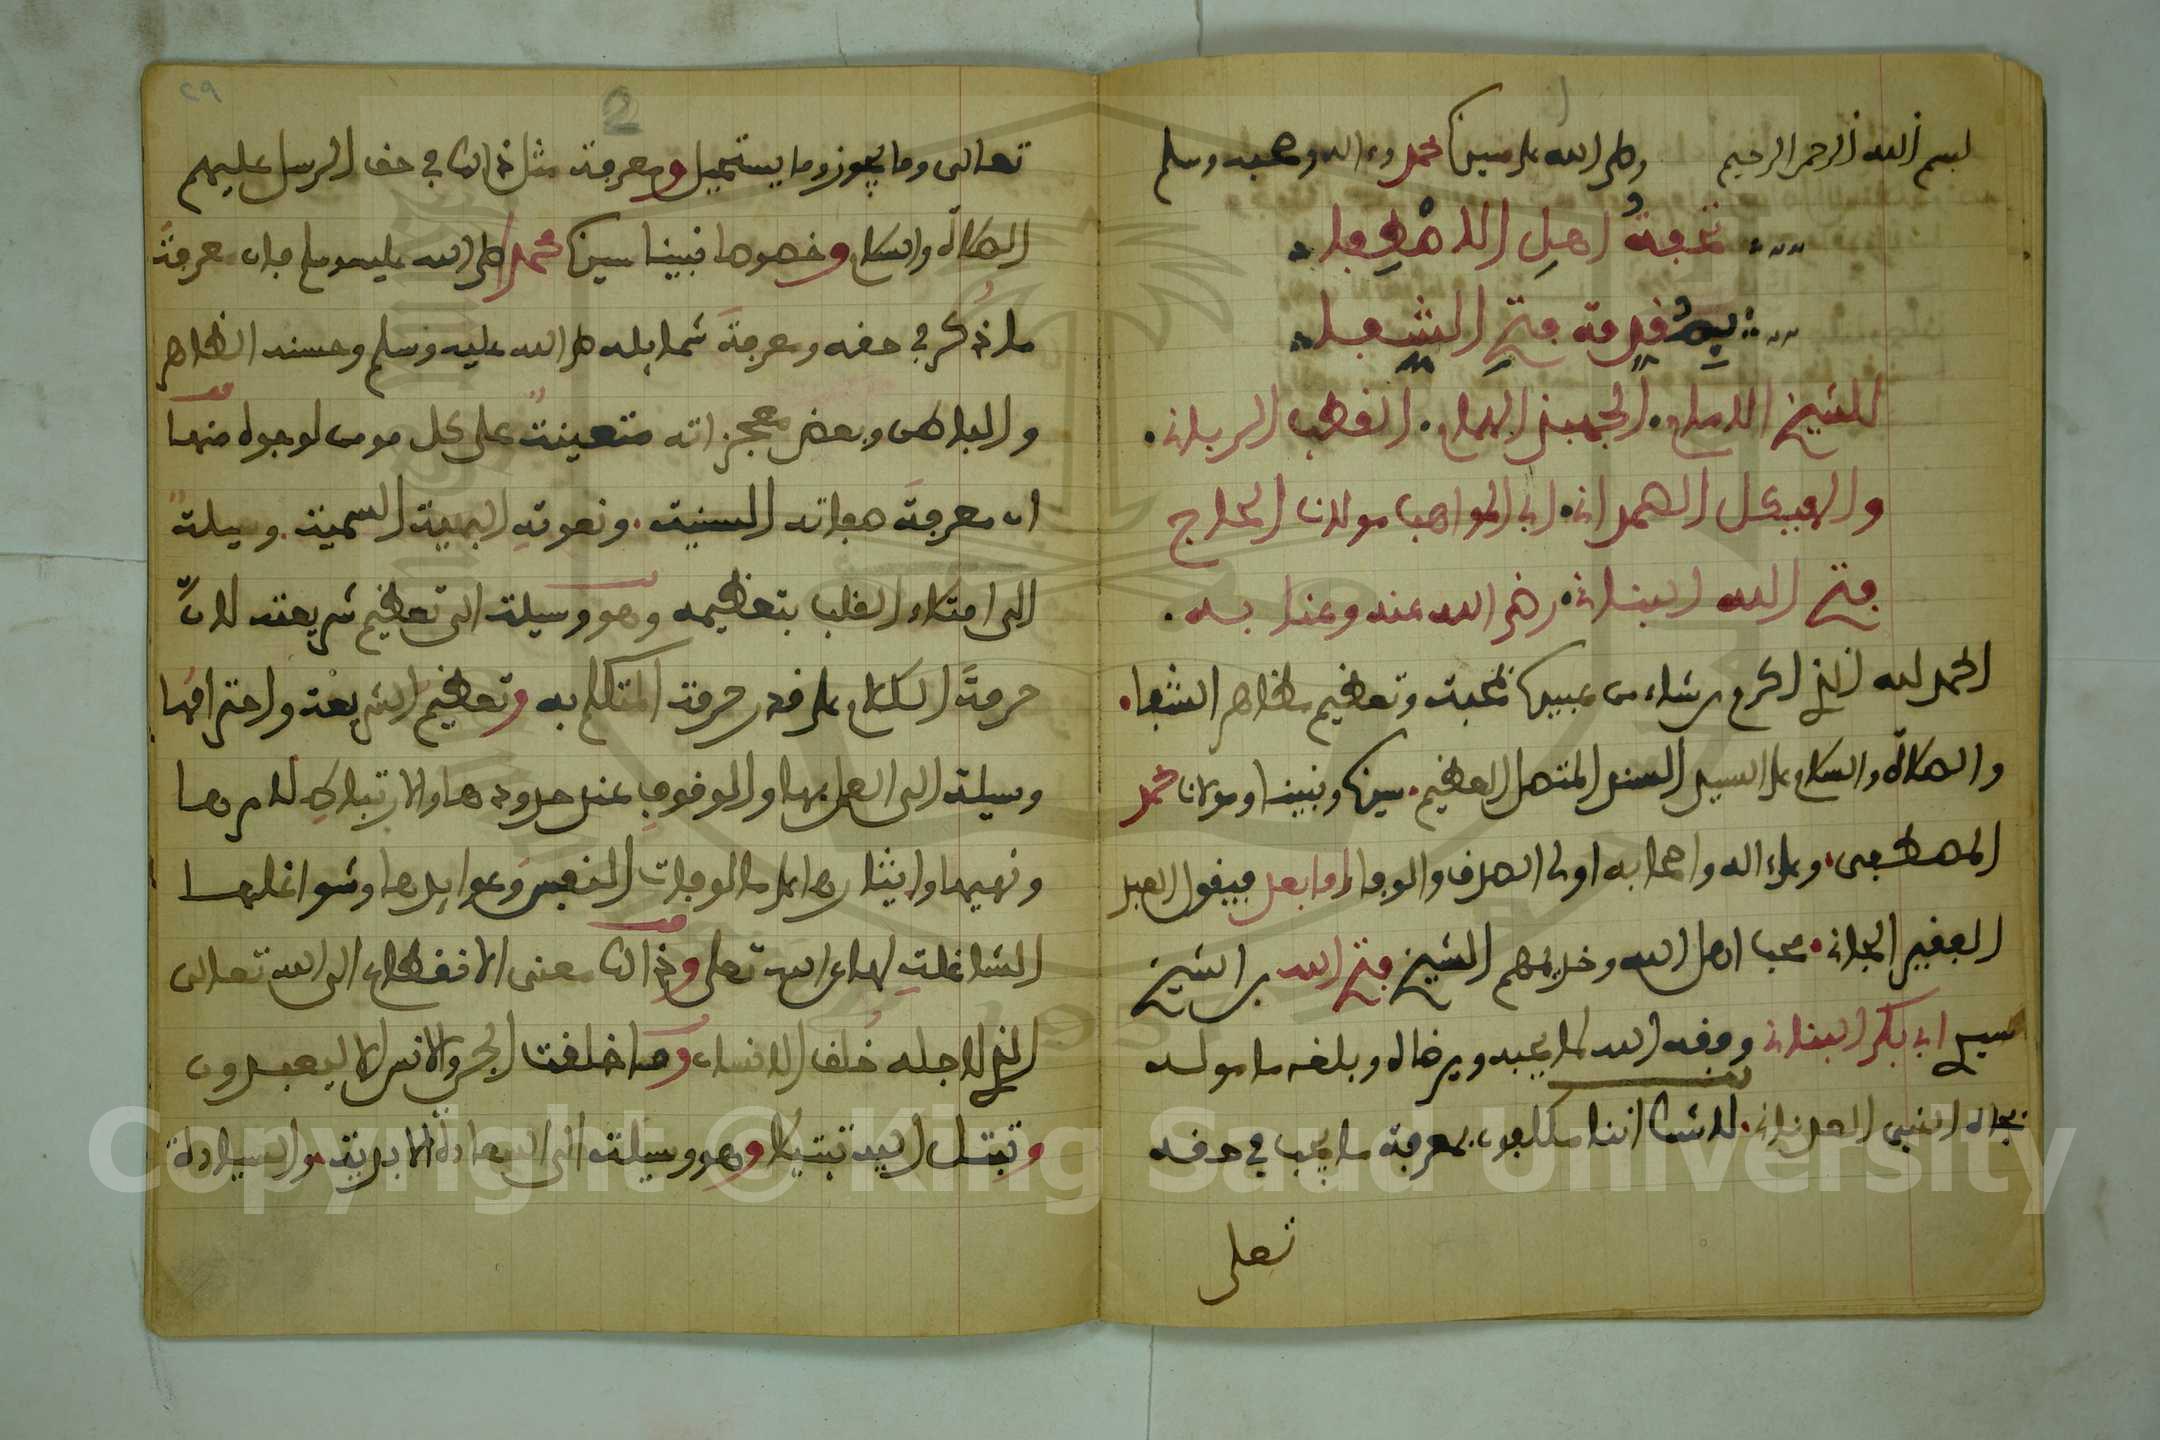 بسم الله الرحمن الرحيم وصلى الله على سيدنا محمد وءاله وصحبه وسلم
تحفة اهل الاصطفا
بمقدمة فتح الشفا
للشيخ الامام. الجهبذ الهمام. القطب الرباني.
والهيكل الصمداني. ابي المواهب مولانا الحاج
فتح الله البناني. رضي الله عنه وعنا به.
الحمد لله الذي اكرم من شاء من عبيده بمحبة وتعظيم مظاهر الشفا.
والصلاة والسلام على السيد السند المتصل العظيم. سيدنا ونبينا ومولانا محمد
المصطفى. وعلى ءاله واصحابه اولى الصدق والوفا اما بعد فيقول العبد
الفقير الجاني. محب اهل الله وخديمهم الشيخ فتح الله بن الشيخ
سيدي ابي بكر البناني وفقه الله لما يحبه ويرضاه وبلغه مامولــه
بجاه النبي العدناني. لا شك اننا مكلفون بمعرفة ما يجب في حقه
تعلى
29
2
تعالى وما يجوز وما يستحيل ومعرفة مثل ذالك في حق الرسل عليهم
الصلاة والسلام وخصوصا نبينا سيدنا محمد صلى الله عليه وسلم فان معرفة
ما ذكر في حقه ومعرفة شمايله صلى الله عليه وسلم وحسنه الظاهر
والباطن وبعض معجزاته متعينة على كل مومن لوجوه منهــا
ان معرفة صفاته السنية. ونعوته البهية السمية. وسيلة
الى امتلاء القلب بتعظيمه وهو وسيلة الى تعظيم شريعته لان
حرمة الكلام على قدر حرمة المتكلم به وتعظيم الشريعة واحترامها
وسيلة الى العمل بها والوقوف عند حدودها والارتباك لامرهــا
ونهيها وايثارها على مالوفات النفس وعوايدها وشواغلهــا
الشاغلة لها عن الله تعلى وذالك معنى الانقطاع الى الله تعالى
الذي لاجله خلق الانسان وما خلقت الجن والانس الا ليعبدون
وتبتــل اليه تبتيلا وهو وسيلة الى السعادة الابدية. والسيادة
Copyright © King Saud University